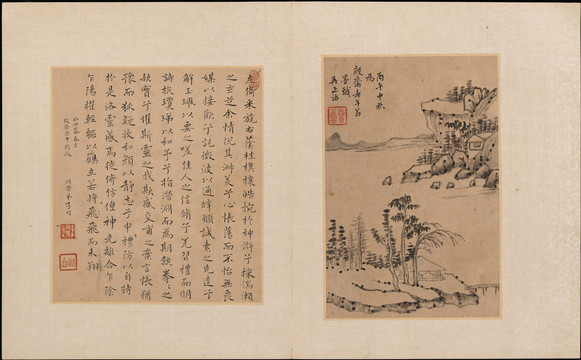 丙午中秋
為
左倚采旄右蔭桂旗攘皓腕於神滸兮採湍瀨
之玄芝余情悅其淑美兮心蕩而不怡無良
媒以接歡兮託微波以通辭願誠素之先達兮
解玉珮以要之嗟佳人之信脩兮羌習禮而明
詩抗瓊珶以和予兮指潛淵而為期執拳拳之
款實兮懼斯靈之我欺感交甫之棄言悵猶
豫而狐疑收和顏以靜志兮申禮防以自持
於是洛靈感焉徙倚彷徨神光離合乍陰
乍陽擢輕軀以鶴立若將飛飛而未翔